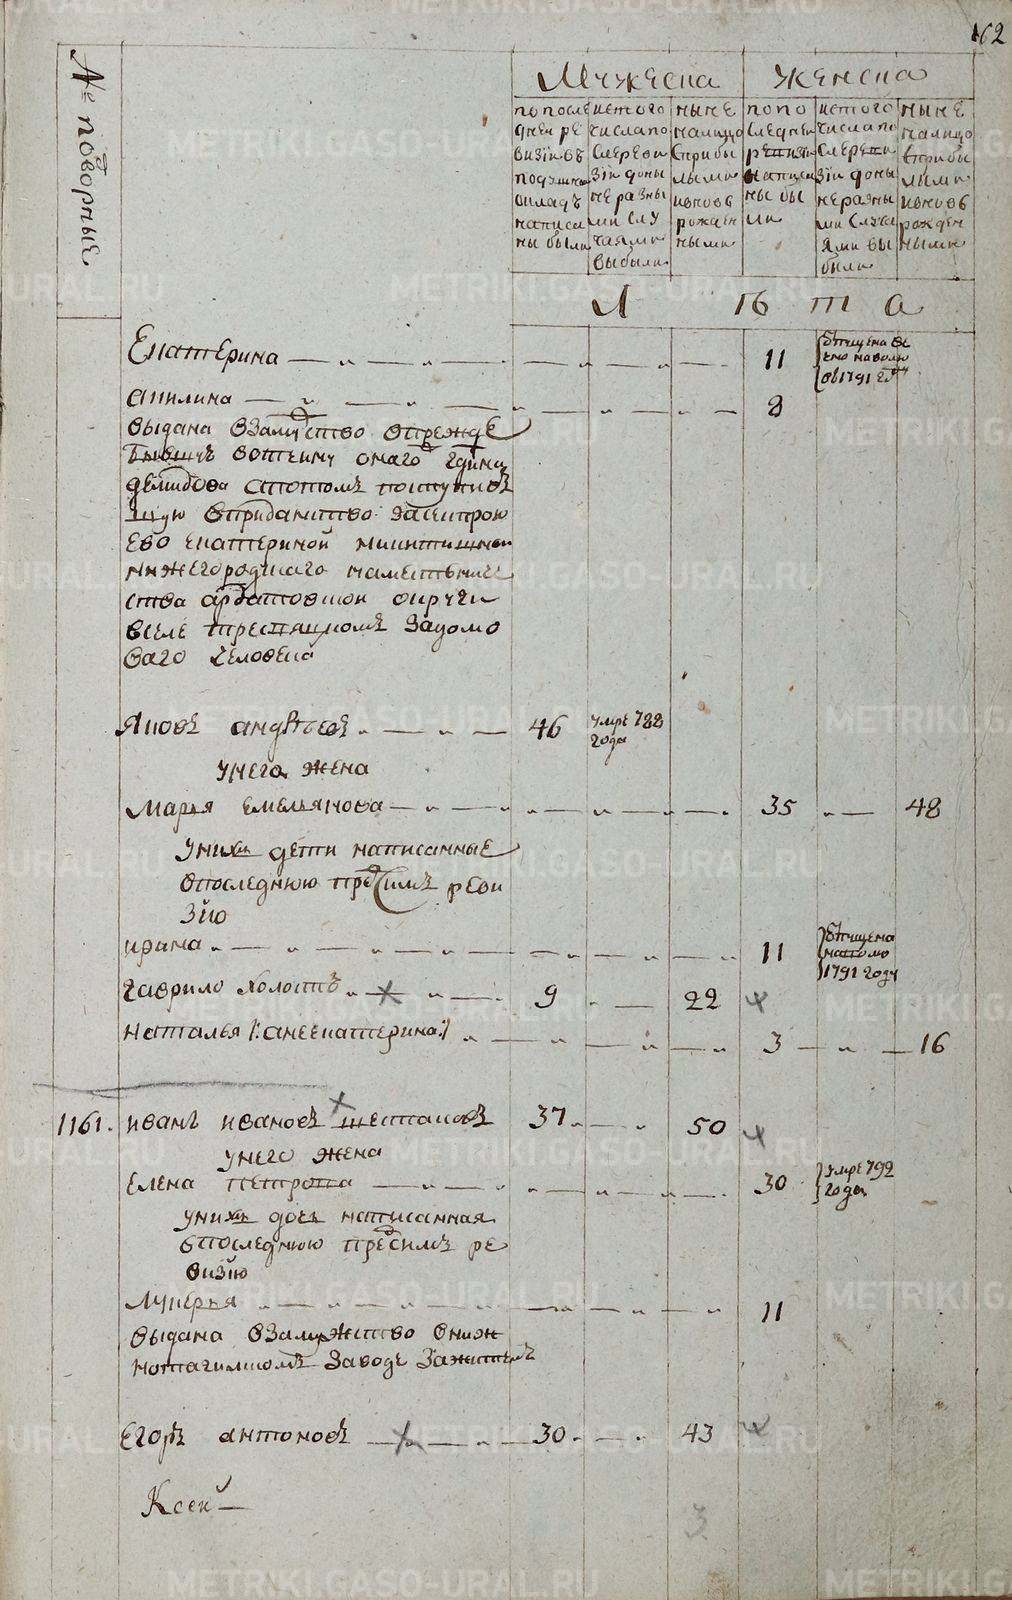 162
№ подворные
Мужеска
Женска
по после
дней ре
визiи въ
подушны
окладъ
написа
ны были
ис того
числа по
сле реви
зiи доны
не разны
ми слу
чаями
выбыли
ныне
налицо
с прибы
лыми
и вновь
рожден
ными
по по
следней
ревизiи
написа
ны бы
ли
ис того
числа по
сле реви
зiи доны
не разны
ми случа
ями вы
были
ныне
налицо
с прибы
лыми
и вновь
рожден
ными
Лѣта
Екатерина 11 отпущена ве
чно на волю
въ 1791 году
акилина 8
выдана взамуство в прежде
бывшую вотчину онаго гдина
демидова а потомъ поступив
шую в приданство за сестрою
ево екатериной
нижегородцкаго намѣстниче
ства арбатовской округи
в селе троецкомъ за домо
ваго человека
Яковъ андрѣевъ 46 умре 788
года
у него жена
Марья емельянова 35 48
у них дети написанные
в последнюю пред симъ реви
зiю
ирина 11 отпущена
на волю
1791 году
гаврило холостъ 9 22
наталья /: она же екатерина :/ 3 16
1161. иванъ ивановъ шестаковъ 37 50
у него жена
Елена петрова 30 умре 792
года
у них дочь написанная
в последнюю пред симъ ре
визiю
Лукерья 11
выдана взамужство в ниж
нотагилскомъ заводе за жителя
Егоръ антоновъ 30 43
Ксен
3